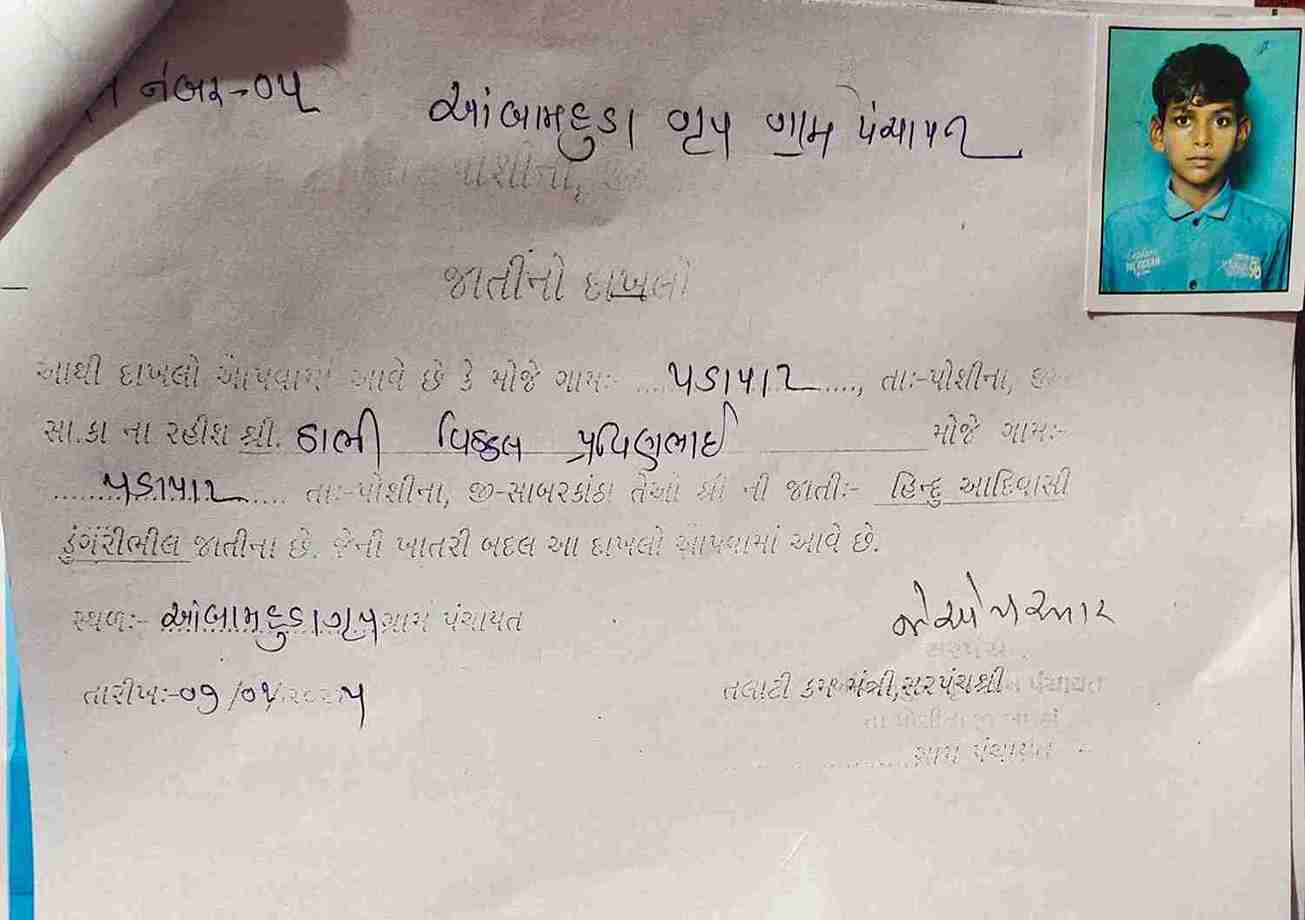 નંબર-૦૫
આંબામહુડા ગૃપ ગ્રામ પંચાયત
પોશીના,
જાતીનો દાખલો
આથી દાખલો આપવામાં આવે છે કે મોજે ગામઃ- ....પડાપાટ....., તાઃ-પોશીના,
સા.કા ના રહીશ શ્રી. ડાભી વિઠ્ઠલ પ્રવિણભાઈ મોજે ગામઃ-
......પડાપાટ...... તાઃ-પોશીના, જી-સાબરકાંઠા તેઓ શ્રી ની જાતીઃ- હિન્દુ આદિવાસી
ડુંગરીભીલ જાતીના છે. જેની ખાતરી બદલ આ દાખલો આપવામાં આવે છે.
સ્થળઃ- આંબામહુડાગૃપગ્રામ પંચાયત
સરપંચ
તારીખઃ-૦૭
તલાટી કમ મંત્રી,સરપંચશ્રી
પંચાયત
ગ્રામ પંચાયત